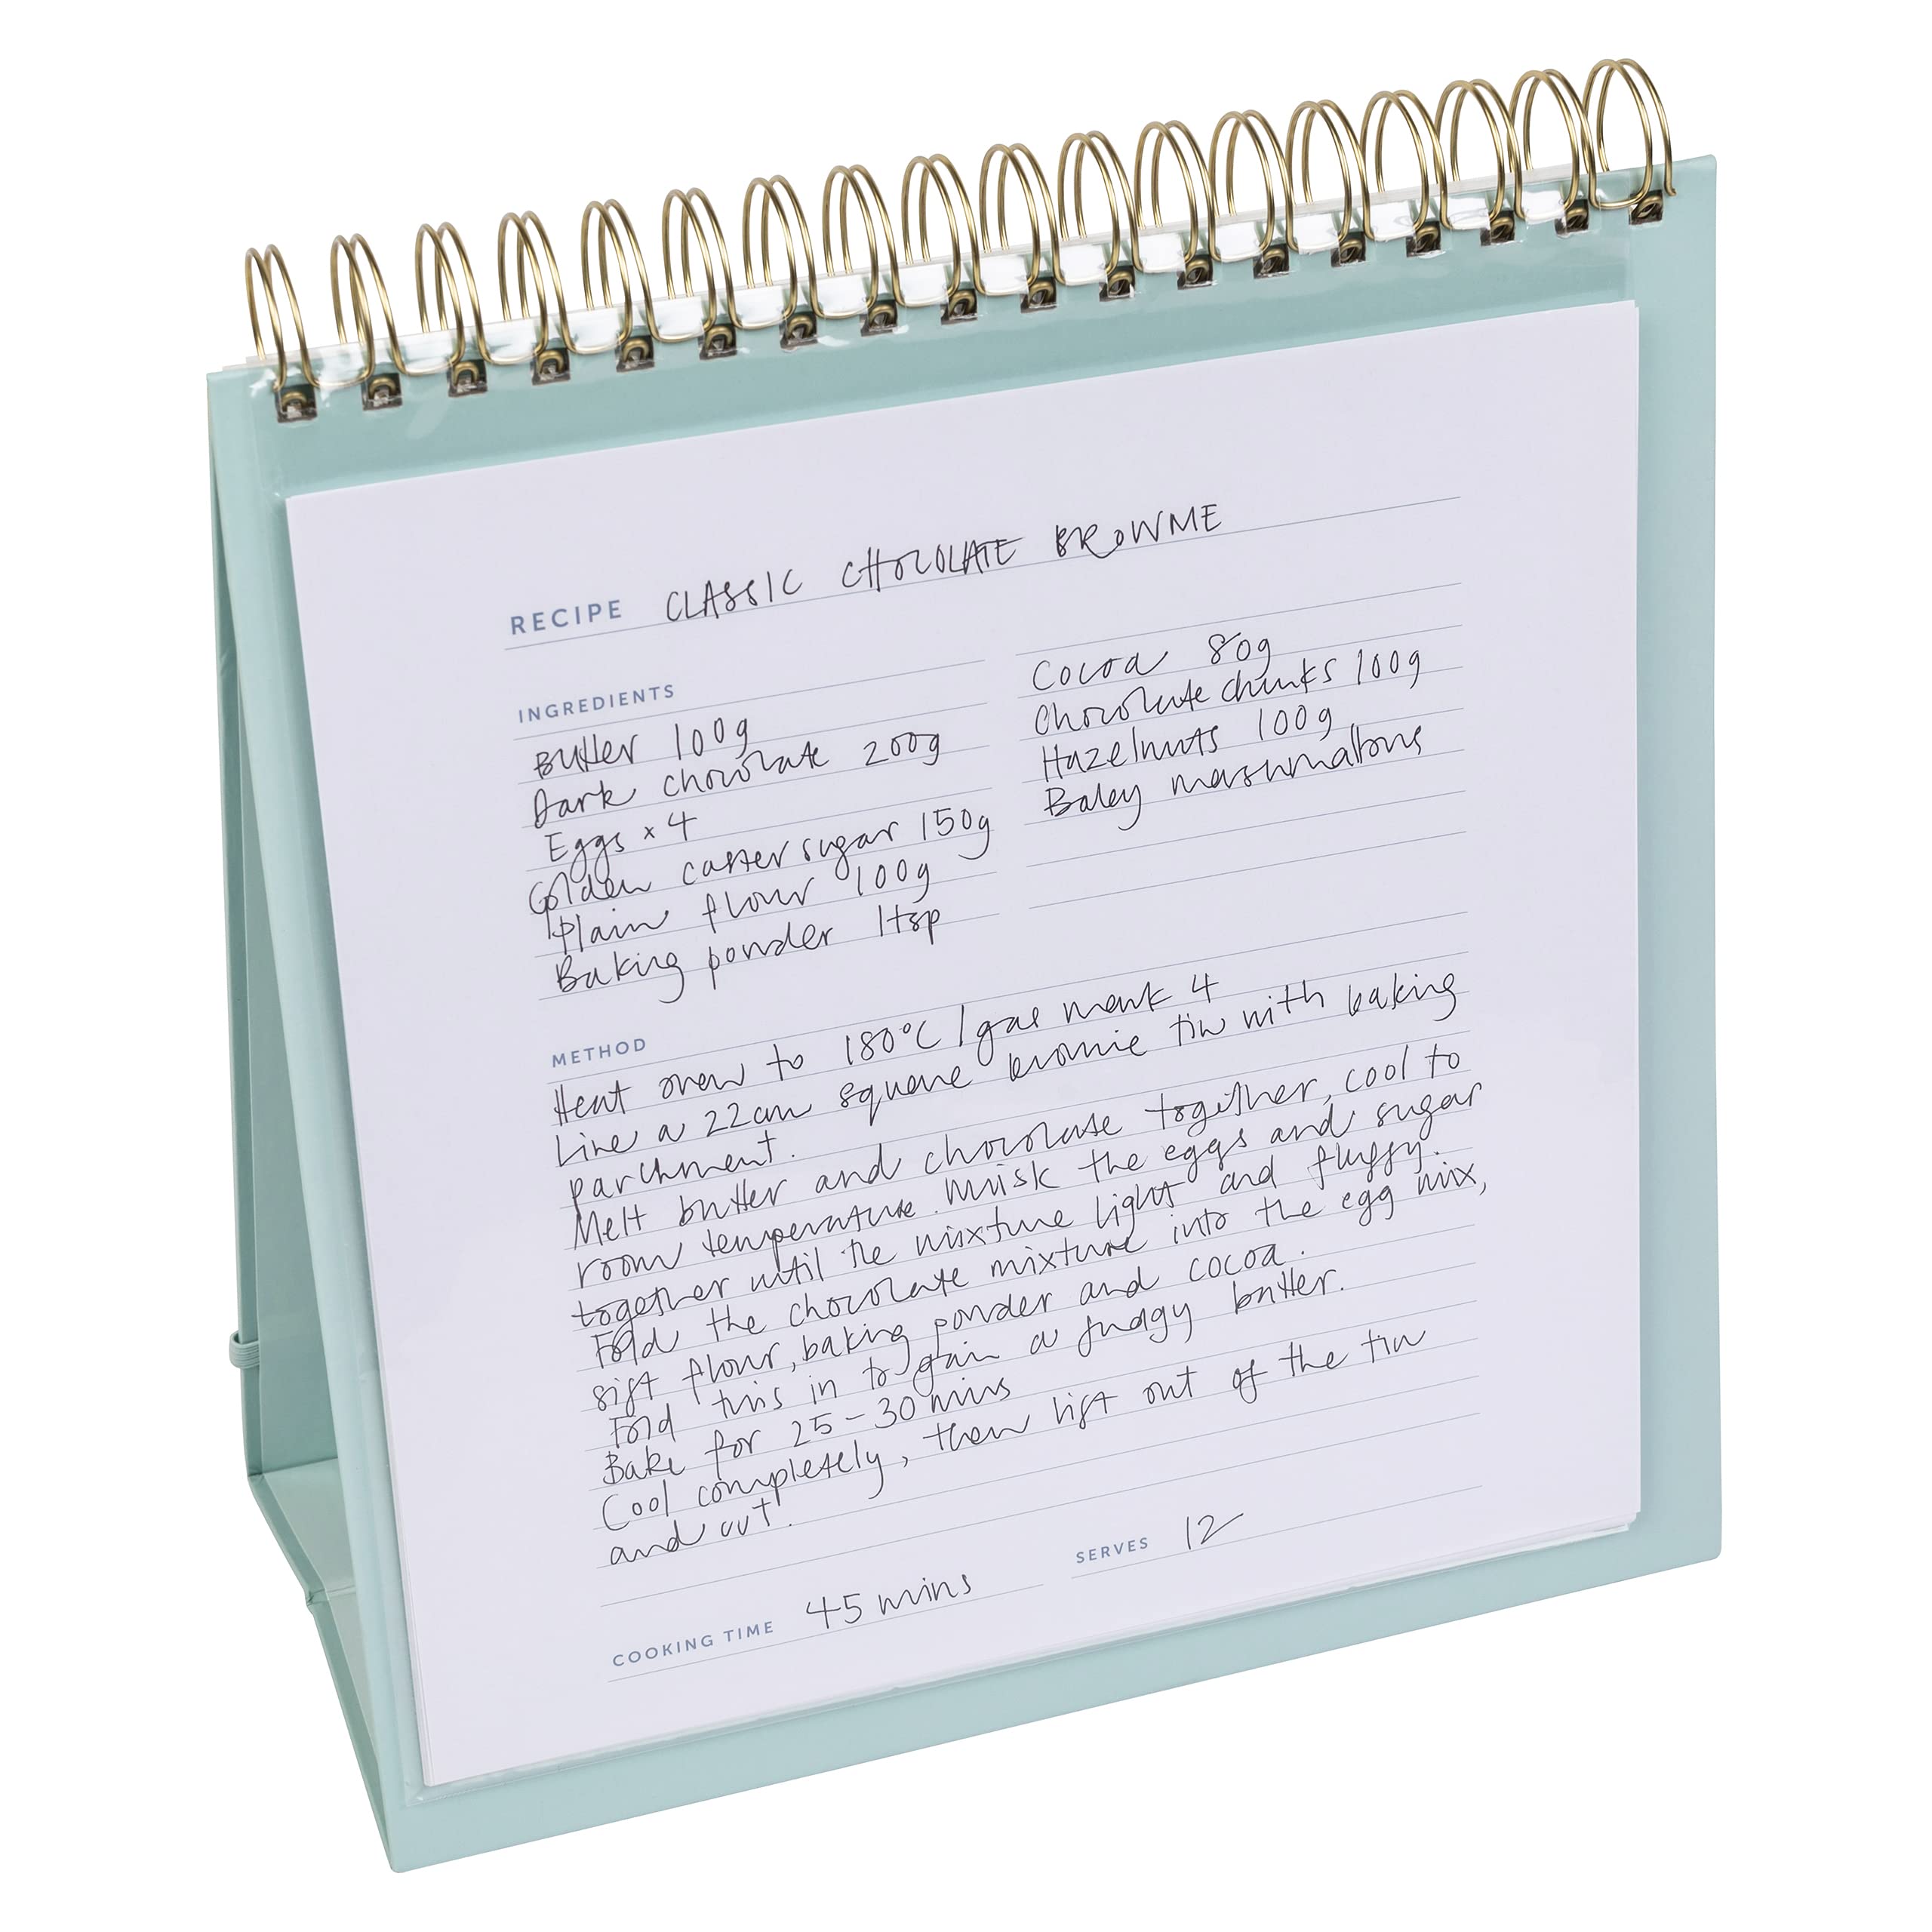 RECIPE CLASSIC CHOCOLATE BROWNIE
INGREDIENTS
Butter 100g
Dark chocolate 200g
Eggs x 4
Golden caster sugar 150g
Plain flour 100g
Baking powder 1tsp
Cocoa 80g
Chocolate chunks 100g
Hazelnuts 100g
Baby marshmallows
METHOD
Heat oven to 180°C / gas mark 4
Line a 22cm square brownie tin with baking
parchment.
Melt butter and chocolate together, cool to
room temperature. Whisk the eggs and sugar
together until the mixture light and fluffy.
Fold the chocolate mixture into the egg mix,
sift flour, baking powder and cocoa.
Fold this in to gain a fudgy batter.
Bake for 25-30 mins
Cool completely, then lift out of the tin
and cut!
COOKING TIME 45 mins
SERVES 12